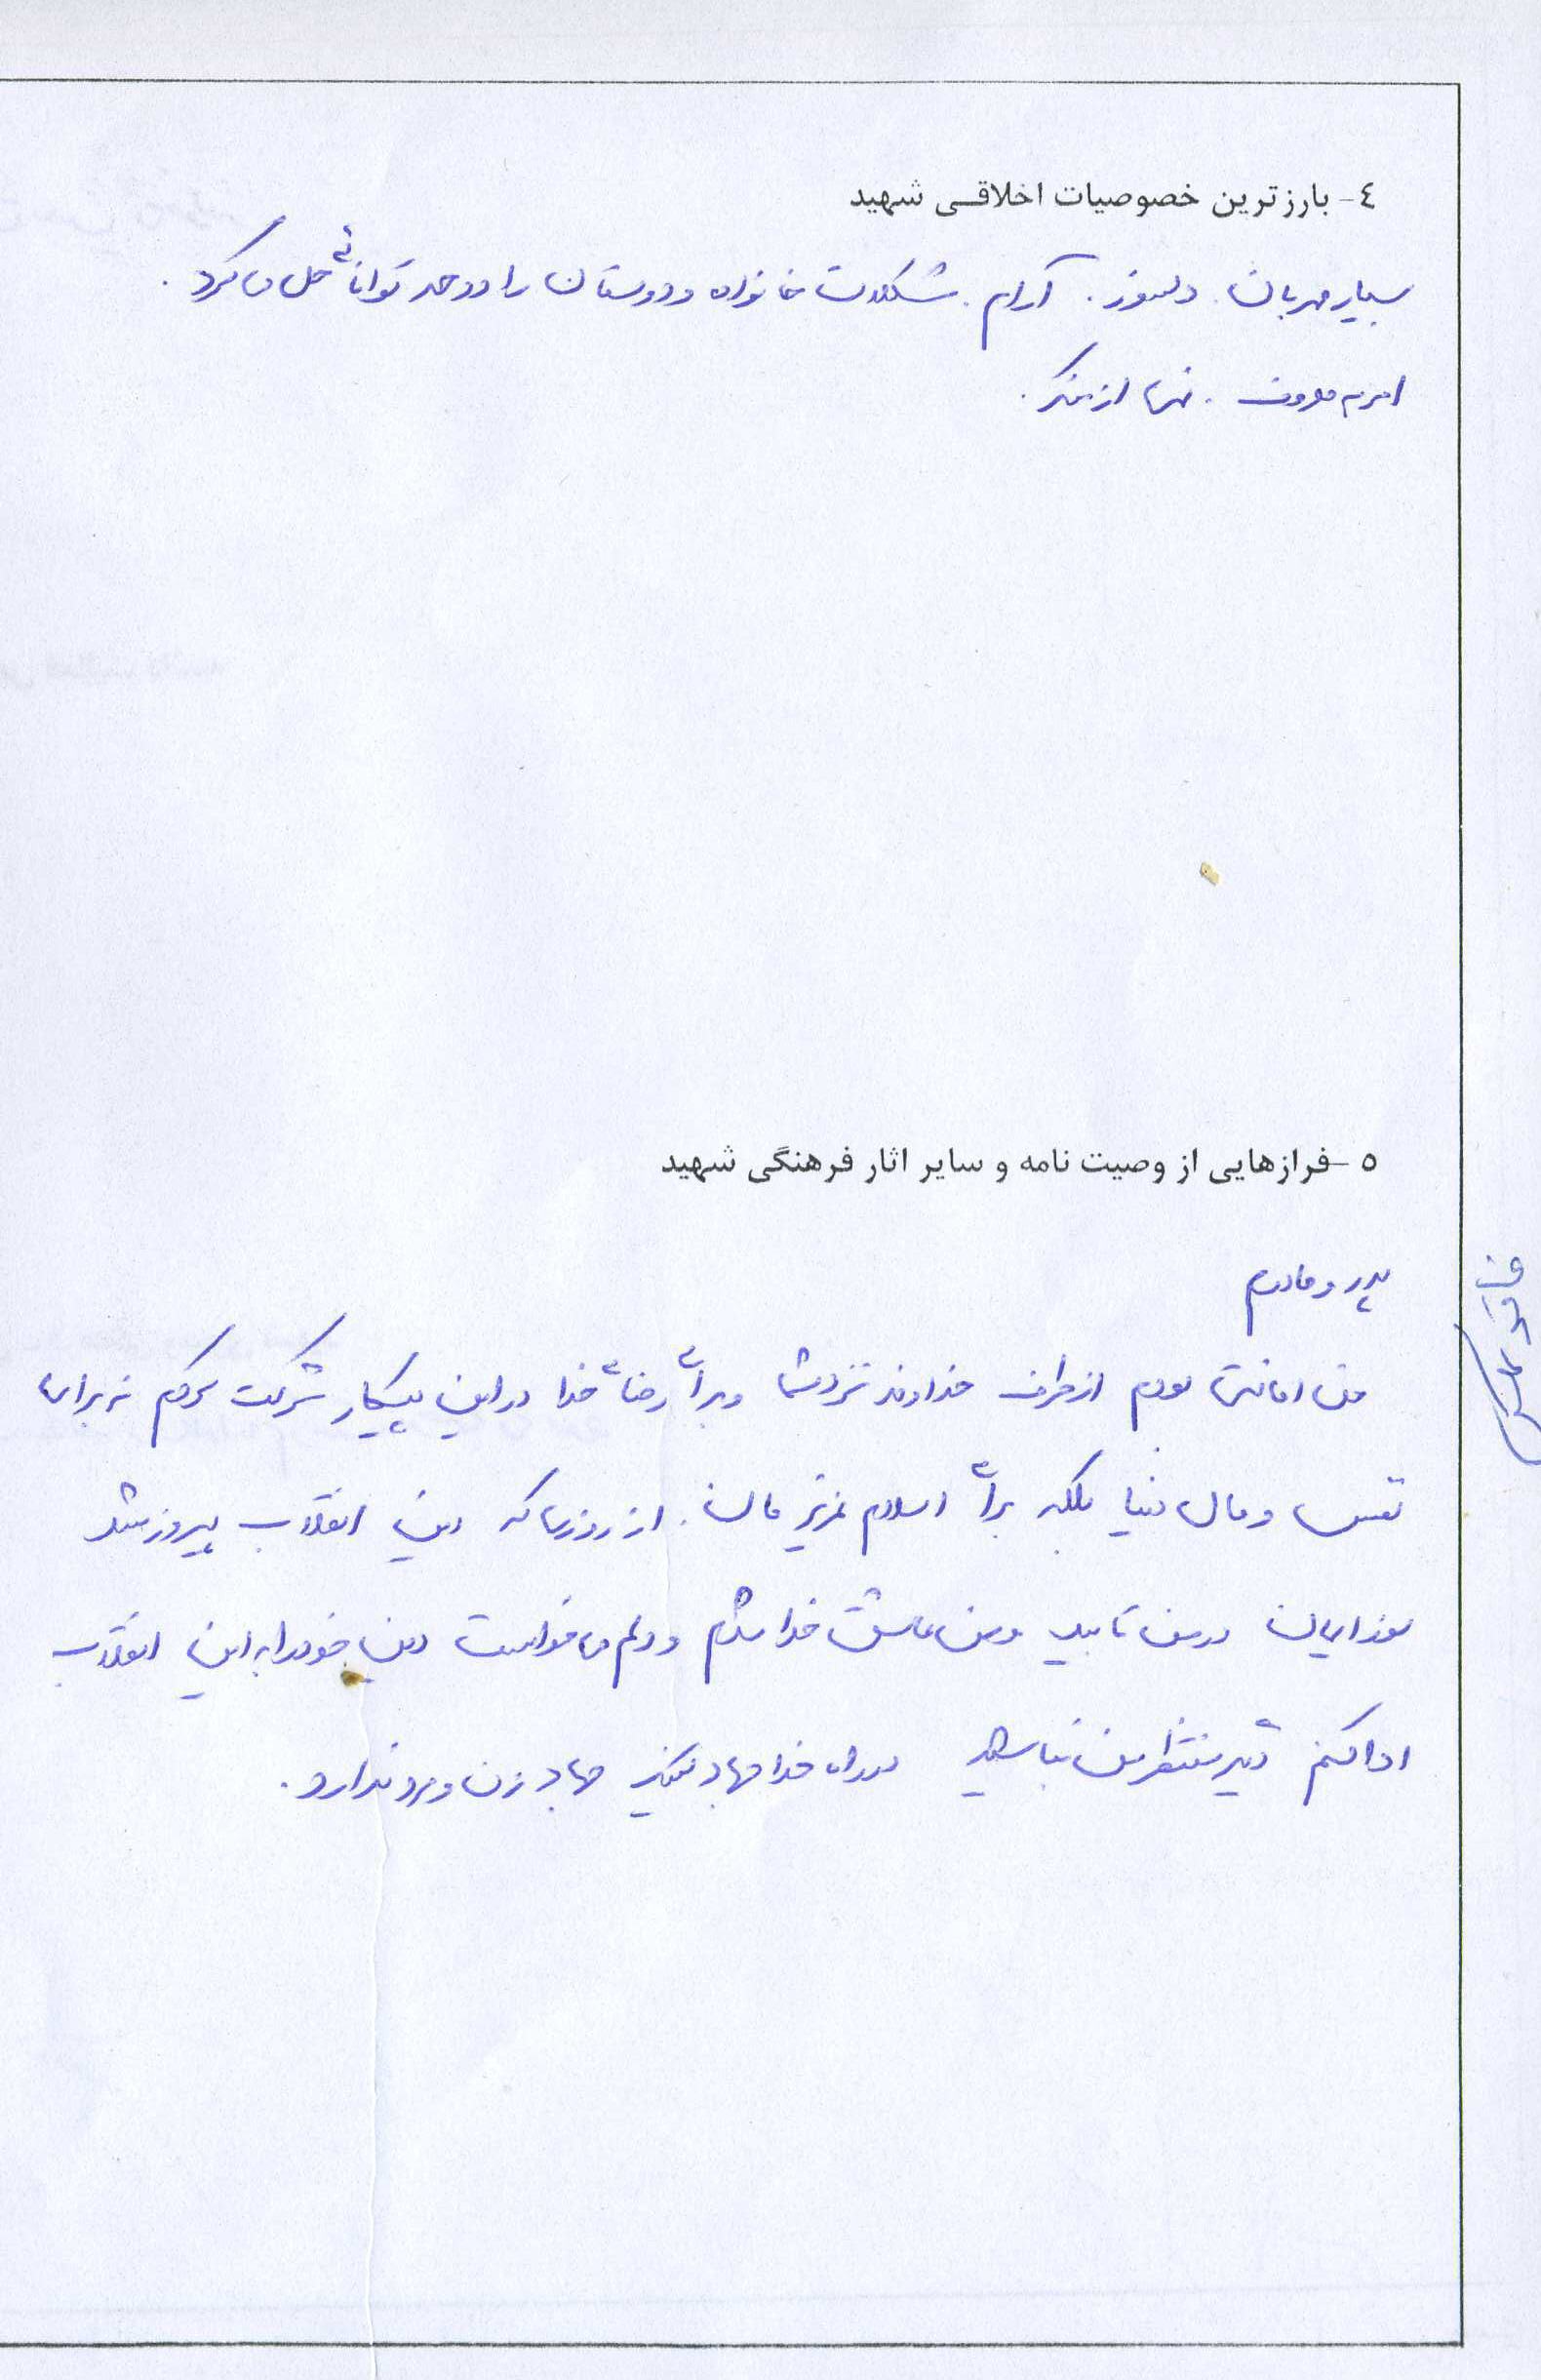 ٤- بارزترین خصوصیات اخلاقی شهید
بسیار مهربان. دلسوز. آرام. مشکلات خانواده و دوستان را در حد توانائی حل می کرد.
امر به معروف. نهی از منکر.
٥-فرازهایی از وصیت نامه و سایر اثار فرهنگی شهید
پدر و مادرم
من امانتی بودم از طرف خداوند نزد شما و برای رضای خدا در این پیکار شرکت کردم نه برای
نفس و مال دنیا بلکه برای اسلام عزیزمان. از روزی که این انقلاب پیروز شد
نور ایمان در من تابید و من عاشق خدا شدم و دلم می خواست دین خود را به این انقلاب
ادا کنم دیگر منتظر من نباشید در راه خدا جهاد کنید جهاد زن و مرد ندارد.